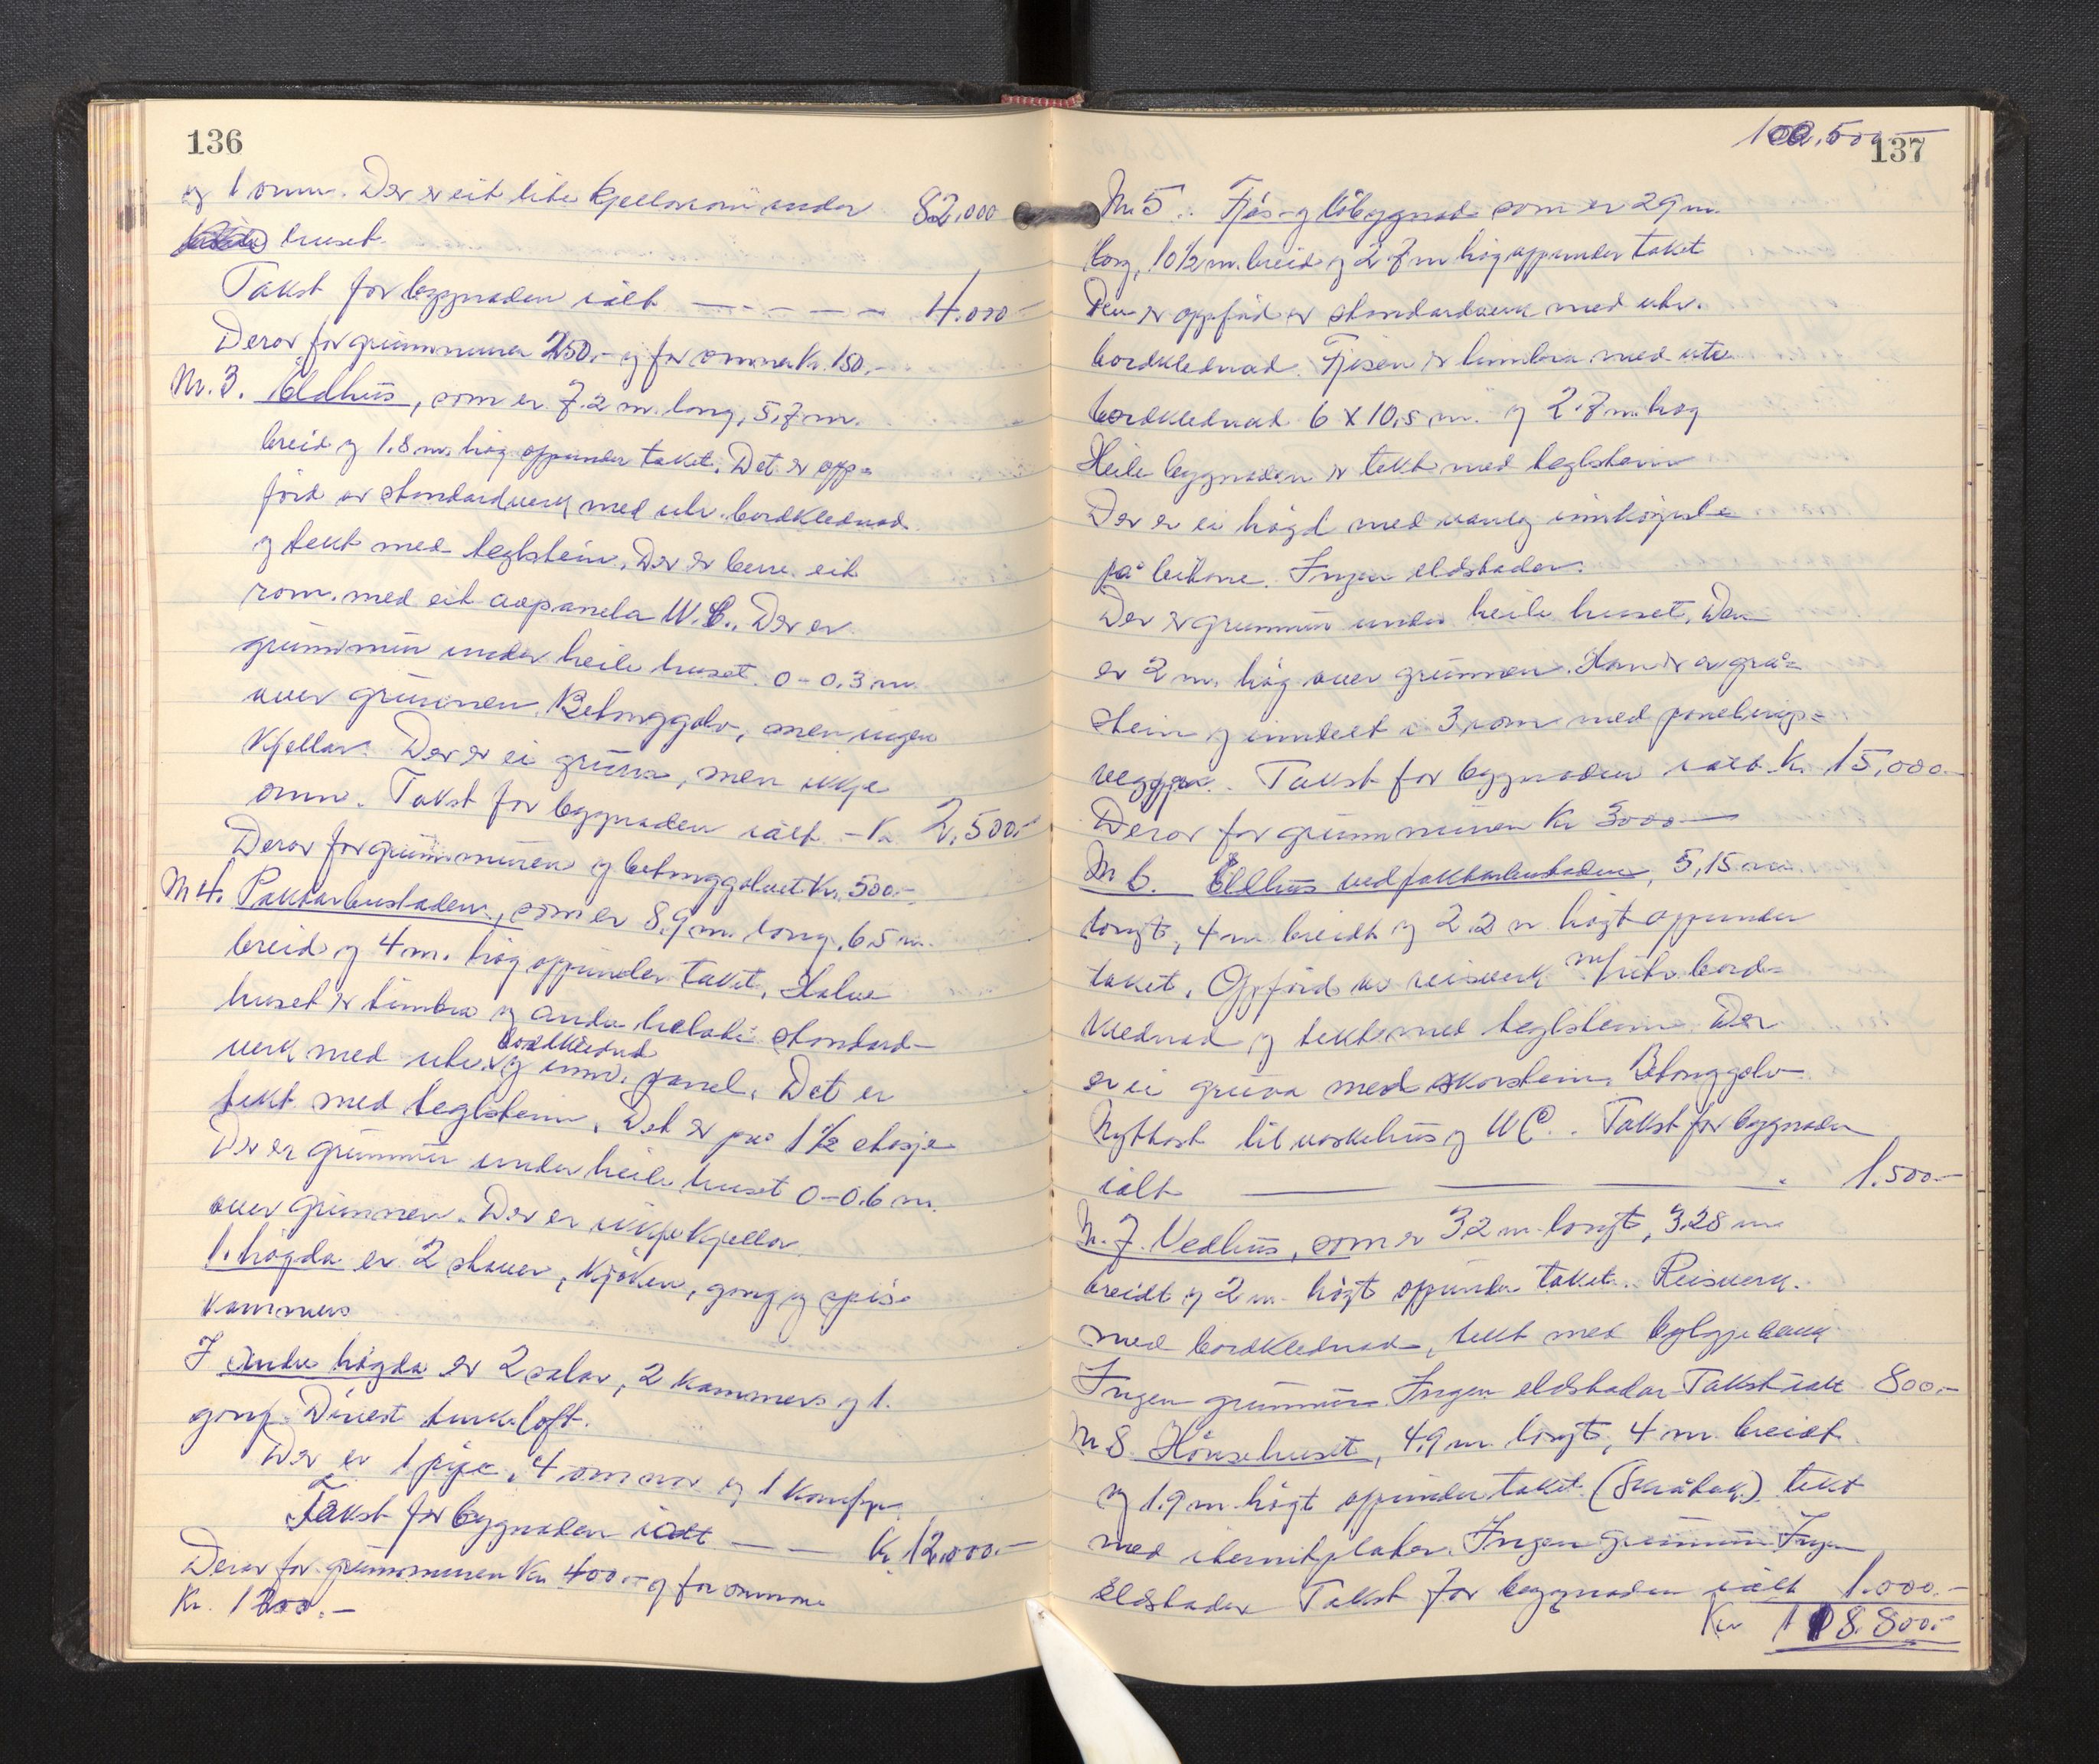 136
og 1 omn. Der er eit lite kjellarom under 82.000
huset.
Takst for bygnaden ialt — - - - — 4.000-
Derav for grunnmuren 250,- og for omnen Kr. 150,-
Nr. 3. Eldhus, som er 7.2 m. long, 5,7 m.
breid og 1.8 m. høg oppunder taket. Det er opp=
förd av standardverk med utv. bordklednad
og tekt med teglstein. Der er berre eit
rom. med eit avpanela W.C.. Der er
grunnmur under heile huset. 0-0.3 m.
over grunnen. Betonggolv, men ingen
Kjellar. Der er ei gruva, men ikkje
omn. Takst for bygnaden ialt - Kr. 2,500.-
Derav for grunnmuren og betonggolvet Kr. 500.-
Nr 4. Pakkarbustaden, som er 8.9 m. long, 6.5 m.
breid og 4 m. høg oppunder taket. Halve
huset er timbra og andre helvta standard-
verk med utv. bordklednad og innv. panel. Det er
tekt med teglstein. Det er på 1½ etasje
Der er grunnmur under heile huset 0-0.6 m.
over grunnen. Der er ikkje kjellar.
1. høgda er 2 stover, kjøken, gong og spis-
kammers
I andre høgda er 2 salar, 2 kammers og 1.
gong. Diverst turkeloft.
Der er 1 pipe, 4 omnar og 1 komfyr.
Takst for bygnaden ialt — — Kr. 12,000.-
Derav for grunnmuren Kr 400.- og for omnane
Kr. 1200.-
100,500-
137
Nr. 5.. Fjös- og löbygnad som er 29 m.
long, 10½ m. breid og 2.7 m høg oppunder taket
Den er oppförd av standardverk med utv.
bordklednad. Fjosen er timbra med utv.
bordklednad 6 x 10,5 m. og 2.7 m. høg
Heile bygnaden er tekt med teglstein
Der er ei högd med vanleg innköyrsle
på bitane. Ingen eldstader.
Der er grunnmur under heile huset. Den
er 2 m. høg over grunnen. Han er av grå=
stein og inndelt i 3 rom med panelings=
veggjer. Takst for bygnaden ialt Kr. 15,000.-
Derav for grunnmuren Kr 3000.-
Nr 6. Eldhus ved pakkarbustaden, 5,15 m.
longt, 4 m breidt og 2.2 m høgt oppunder
taket. Oppförd av reisverk m/utv. bord-
klednad og tekt med teglstein. Der
er ei gruva med skorstein. Betonggolv
Nyttast til vaskehus og WC.. Takst for bygnaden
ialt — — — 1.500.-
Nr. 7. Vedhus, som er 3.2 m longt, 3.28 m
breidt og 2 m. høgt oppunder taket.. Reisverk.
med bordklednad, tekt med bylgjeblekk
Ingen grunnmur. Ingen eldstader. Takst ialt 800.-
Nr 8. Hönsehuset, 4,9 m. longt, 4 m. breidt
og 1.9 m. høgt oppunder taket. (Skråtak). tekt
med eternitplater. Ingen grunnmur. Ingen
eldstader Takst for bygnaden ialt 1.000.-
Kr 118.800.-